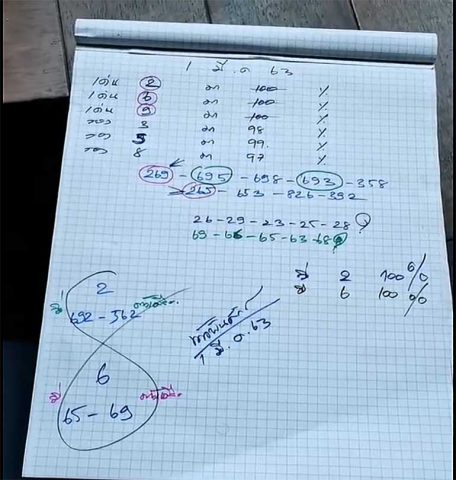 1 มี.ค 63
เด่น 2 มา 100 %
เด่น 6 มา 100 %
เด่น 9 มา 100 %
รอง 3 มา 98 %
รอง 5 มา 99. %
รอง 8 มา 97 %
269 - 695 - 698 - 693 - 358
265 - 653 - 826 - 392
26 - 29 - 23 - 25 - 28
69 - 6 - 65 - 63 - 68
2 100 %
6 100 %
2
692 - 562
1 มี.ค.63
6
65 - 69